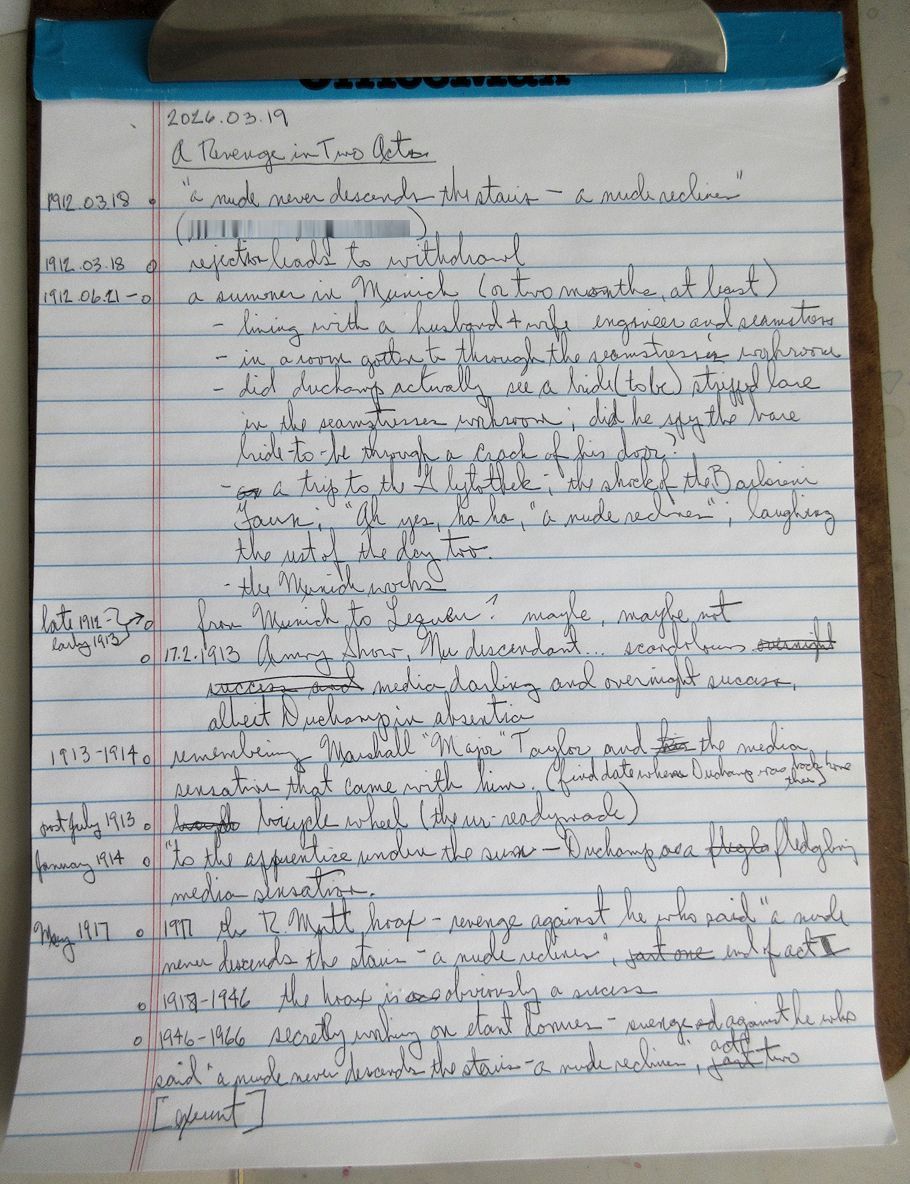 OfficeMax
2026.03.19
A Revenge in Two Acts
1912.03.18 "a nude never descends the stairs – a nude reclines"
( )
1912.03.18 rejection leads to withdrawl
1912.06.21 – a summer in Munich (or two months, at least)
- living with a husband + wife engineer and seamstress
- in a room gotten to through the seamstress's workroom
- did duchamp actually see a bride (to be) stripped bare
in the seamstresses workroom; did he spy the bare
bride-to-be through a crack of his door?
- a trip to the Glyptothek; the shock of the Barberini
Faun; "Ah yes, ha ha, "a nude reclines"; laughing
the rest of the day too.
- the Munich works
late 1912 - early 1913 from Munich to Lequeu? maybe, maybe not
17.2.1913 Armory Show, Nu descendant... scandalous overnight
success and media darling and overnight success,
albeit Duchamp in absentia
1913-1914 remembering Marshall "Major" Taylor and the media
sensation that came with him. (find date when Duchamp was back home then)
post July 1913 bought bicycle wheel (the ur-readymade)
January 1914 "to the apprentice under the sun – Duchamp as a fledgling
media sensation.
May 1917 1917 the R. Mutt hoax – revenge against he who said "a nude
never descends the stairs – a nude reclines", part one end of act I
1917-1946 the hoax is obviously a sucess
1946-1966 secretly working on etant donnes – revenge against he who
said "a nude never descends the stairs – a nude reclines", part act two
[exeunt]